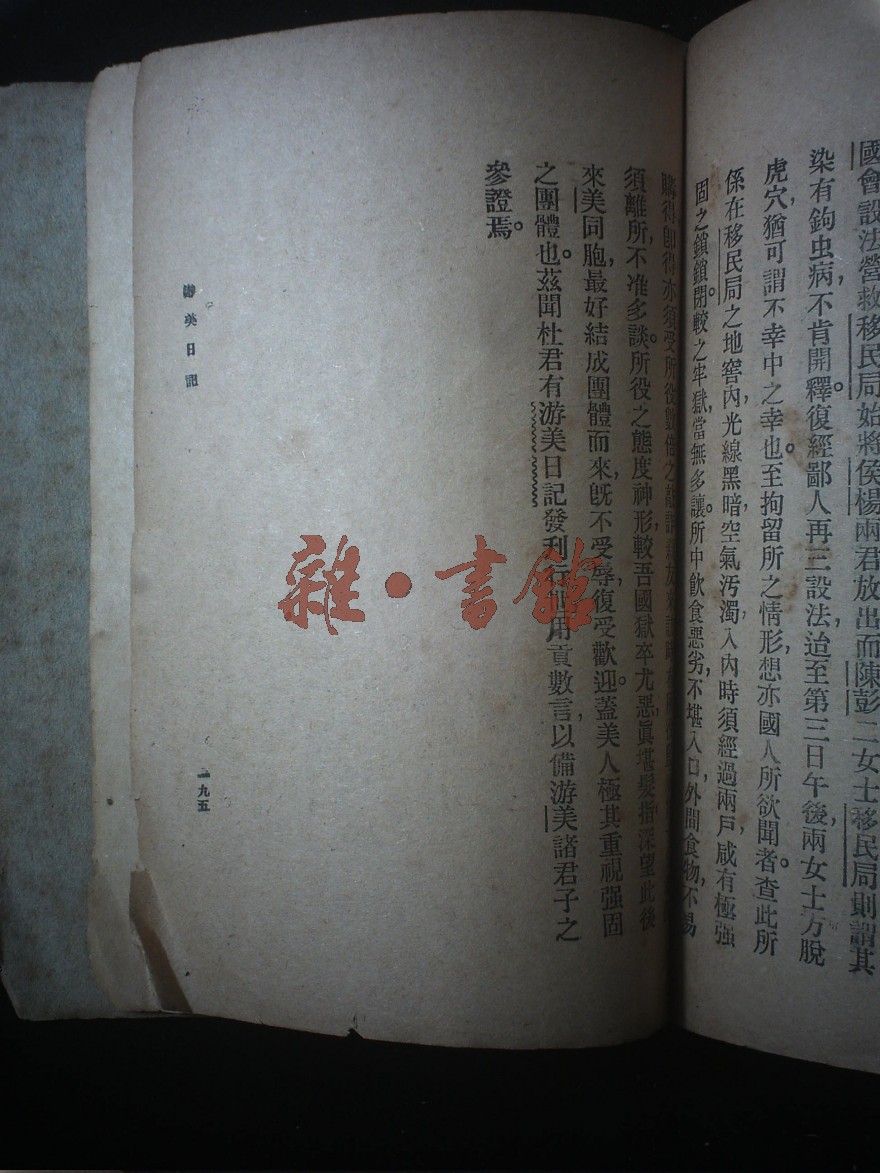 國會設法營救移民局始將侯楊兩君放出而陳彭二女士移民局則謂其
染有鉤虫病,不肯開釋。復經鄙人再三設法,迨至第三日午後,兩女士方脫
虎穴,猶可謂不幸中之幸也。至拘留所之情形,想亦國人所欲聞者。查此所
係在移民局之地窖內,光線黑暗,空氣污濁,入內時須經過兩戶,咸有極强
固之鎖鎖閉,較之牢獄,當無多讓。所中飮食惡劣,不堪入口,外間食物,不易
購得,卽得亦須受所役數倍之
須離所,不准多談。所役之態度神形,較吾國獄卒尤惡,眞堪髮指。深望此後
來美同胞,最好結成團體而來,旣不受辱,復受歡迎。蓋美人極其重視强固
之團體也。茲聞杜君有游美日記發刋行世用貢數言,以備游美諸君子之
參證焉。
游美日記
二九五
雜·書館